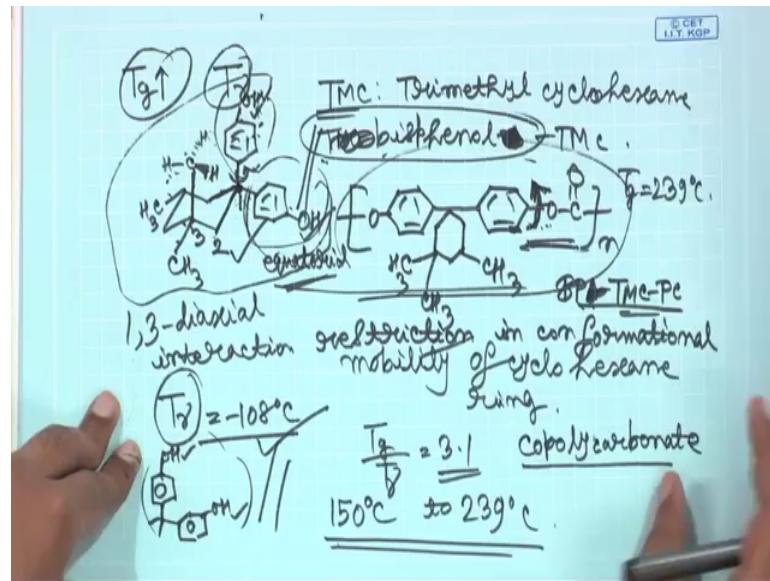 © CET
I.I.T. KGP
Tg↑
Tγ
TMC: Trimethyl cyclohexane
bisphenol - TMC.
OH
H
H-C-H
H3C
3
2
CH3
OH
equatorial
O
O
O-C
n
H3C
CH3
CH3
Tg=239°C.
TMC-PC
1,3-diaxial
interaction
restriction in conformational
mobility of cyclohexane
ring.
Tγ = -108°C
OH
OH
Tg/Tγ = 3.1
copolycarbonate
150°C to 239°C.